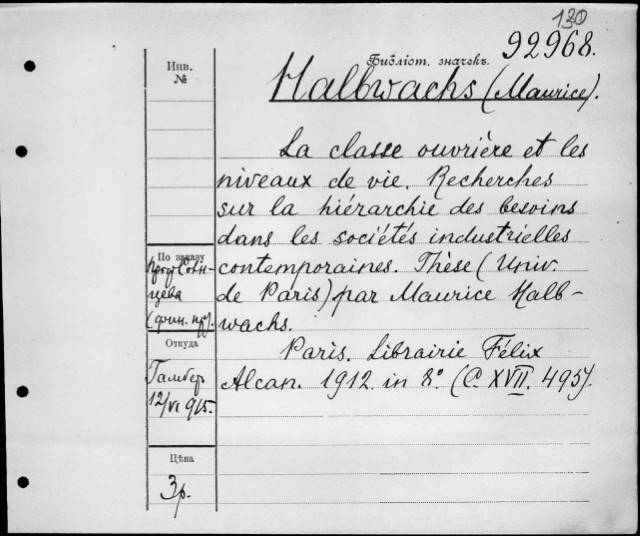 130
92968.
Библіот. значекъ.
Инв.
№
Halbwachs (Maurice).
La classe ouvrière et les
niveaux de vie. Recherches
sur la hiérarchie des besoins
dans les sociétés industrielles
contemporaines. Thèse (Univ.
de Paris) par Maurice Halb-
wachs.
Paris. Librairie Félix
Alcan. 1912. in 8°. (C. XVII. 495).
По заказу
(фин. пр.).
Откуда
12/VI 915.
Цѣна
3р.